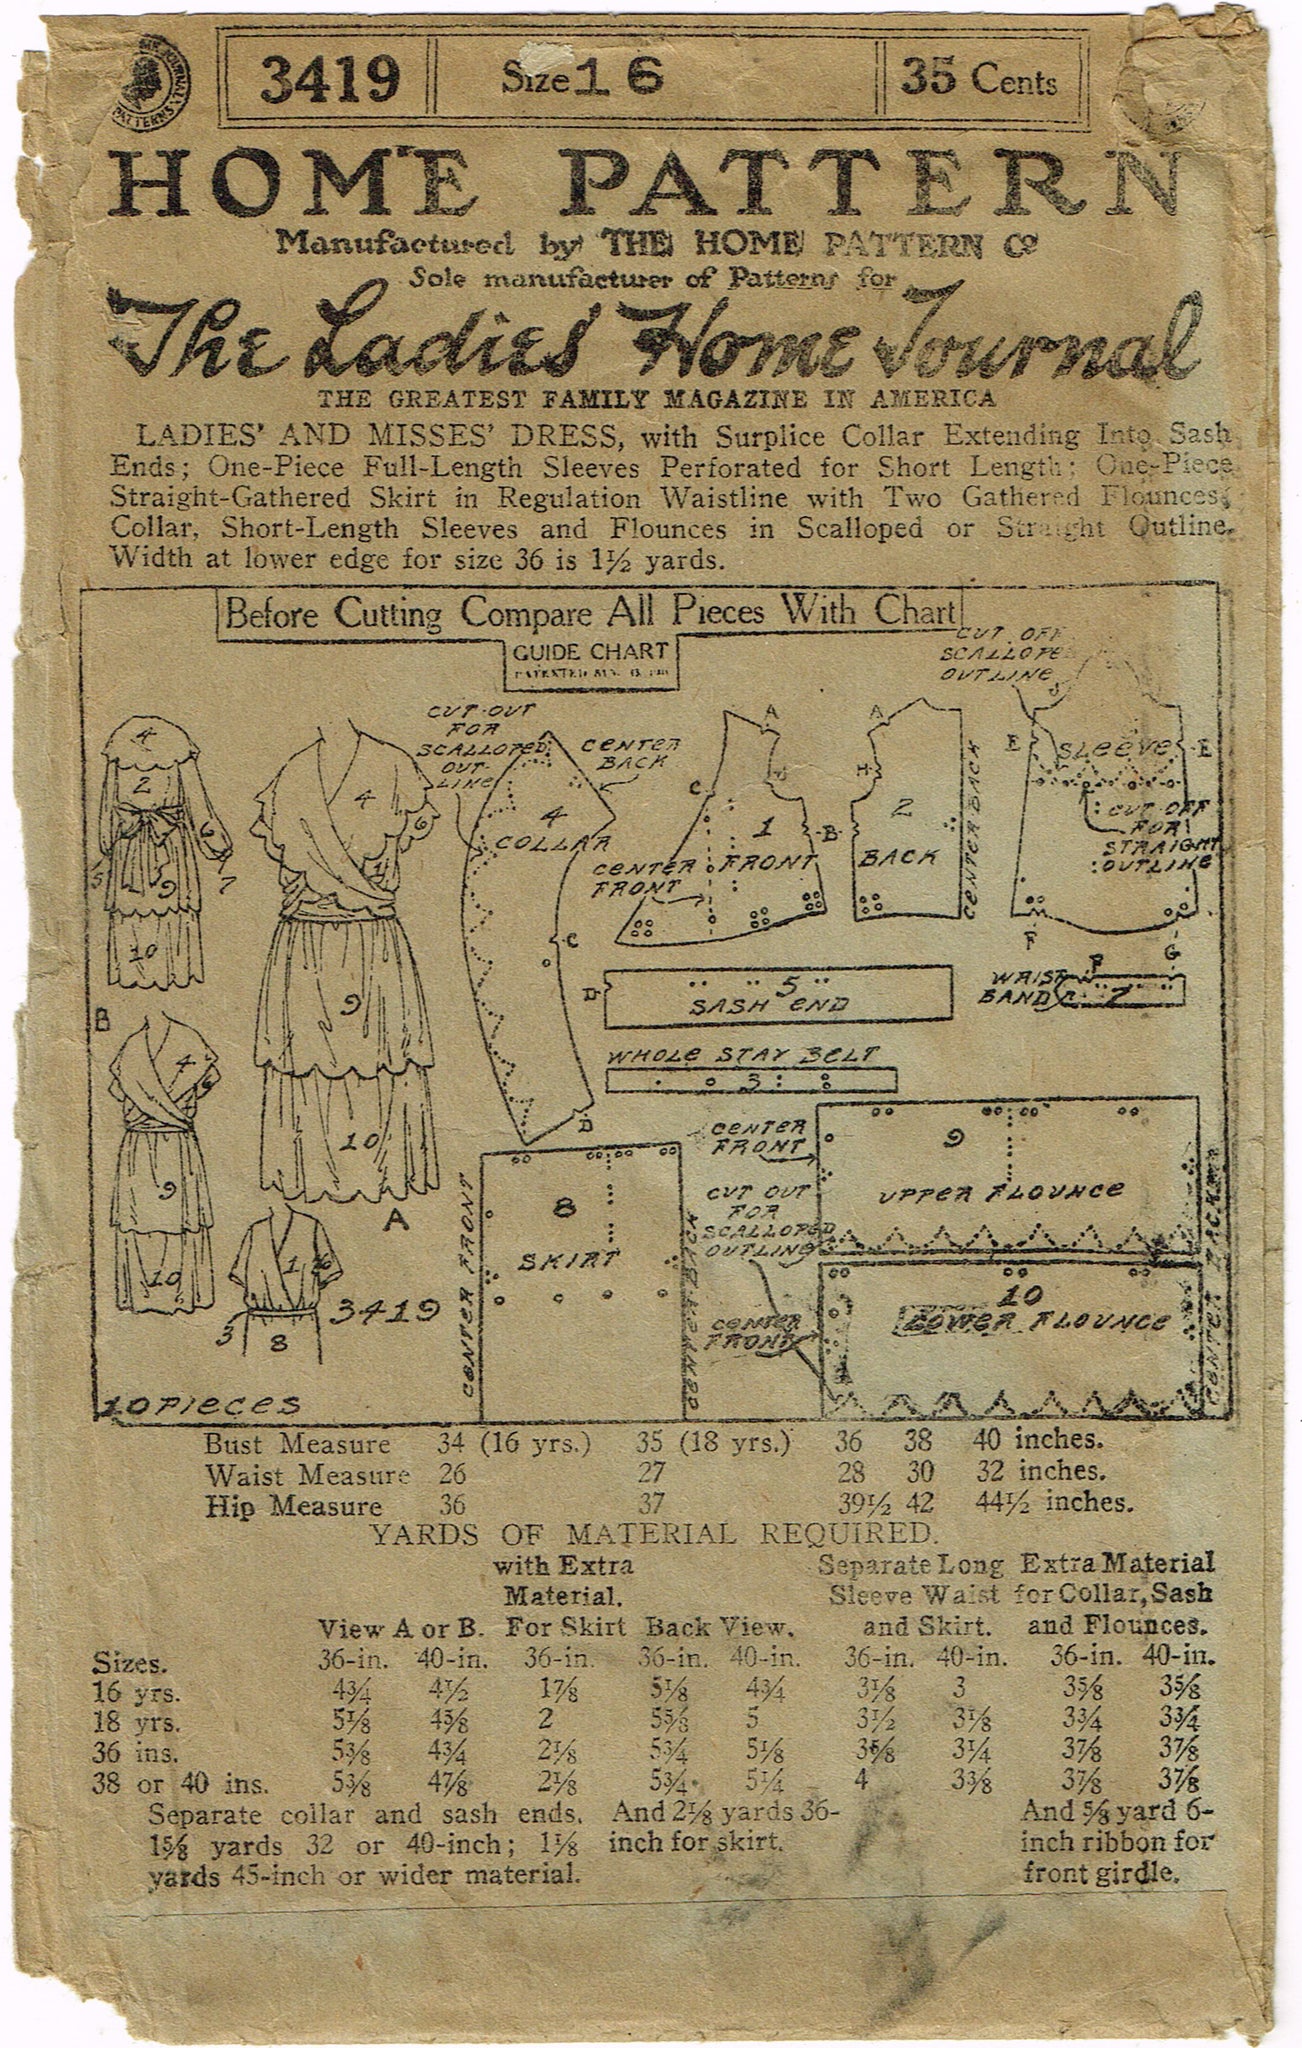 3419
Size 16
35 Cents
HOME PATTERN
Manufactured by THE HOME PATTERN Co
Sole manufacturer of Patterns for
The Ladies' Home Journal
THE GREATEST FAMILY MAGAZINE IN AMERICA
LADIES' AND MISSES' DRESS, with Surplice Collar Extending Into Sash
Ends; One-Piece Full-Length Sleeves Perforated for Short Length; One-Piece
Straight-Gathered Skirt in Regulation Waistline with Two Gathered Flounces;
Collar, Short-Length Sleeves and Flounces in Scalloped or Straight Outline.
Width at lower edge for size 36 is 1½ yards.
Before Cutting Compare All Pieces With Chart
GUIDE CHART
CUT OUT
FOR
SCALLOPED
OUT-
LINE
CENTER
BACK
4
COLLAR
C
D
D
A
C
1
FRONT
B
CENTER
FRONT
A
H
2
BACK
CENTER BACK
CUT OFF
SCALLOPED
OUTLINE
E
SLEEVE
E
CUT OFF
FOR
STRAIGHT
OUTLINE
F
G
5
SASH END
WRIST
BAND
F
7
WHOLE STAY BELT
3
CENTER
FRONT
9
UPPER FLOUNCE
CUT OUT
FOR
SCALLOPED
OUTLINE
CENTER BACK
10
LOWER FLOUNCE
CENTER
FRONT
CENTER BACK
8
SKIRT
CENTER FRONT
CENTER BACK
4
2
6
5
9
7
10
B
4
6
1
9
10
A
4
6
9
10
1
6
3
8
3419
10 PIECES
Bust Measure 34 (16 yrs.) 35 (18 yrs.) 36 38 40 inches.
Waist Measure 26 27 28 30 32 inches.
Hip Measure 36 37 39½ 42 44½ inches.
YARDS OF MATERIAL REQUIRED.
with Extra Separate Long Extra Material
Material. Sleeve Waist for Collar, Sash
View A or B. For Skirt Back View. and Skirt. and Flounces.
Sizes. 36-in. 40-in. 36-in. 36-in. 40-in. 36-in. 40-in. 36-in. 40-in.
16 yrs. 4¾ 4½ 1⅞ 5⅛ 4¾ 3⅛ 3 3⅝ 3⅝
18 yrs. 5⅛ 4⅝ 2 5⅝ 5 3½ 3⅛ 3¾ 3¾
36 ins. 5⅜ 4¾ 2⅛ 5¾ 5⅛ 3⅝ 3¼ 3⅞ 3⅞
38 or 40 ins. 5⅜ 4⅞ 2⅛ 5¾ 5¼ 4 3⅜ 3⅞ 3⅞
Separate collar and sash ends. And 2⅛ yards 36- And ⅝ yard 6-
1⅝ yards 32 or 40-inch; 1⅛ inch for skirt. inch ribbon for
yards 45-inch or wider material. front girdle.